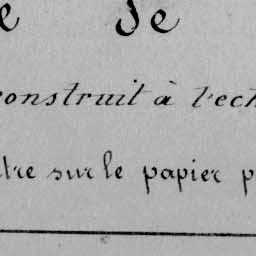 e de
construit à l'ech
tre sur le papier p